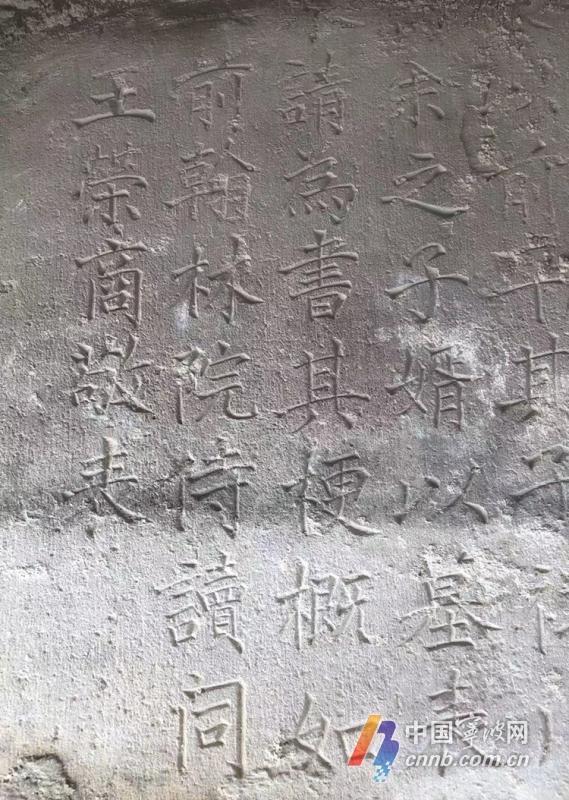 前其子
余之子婿以墓表
請為書其梗概如
前翰林院侍讀同
王榮商敬表
中国寧波网
cnnb.com.cn